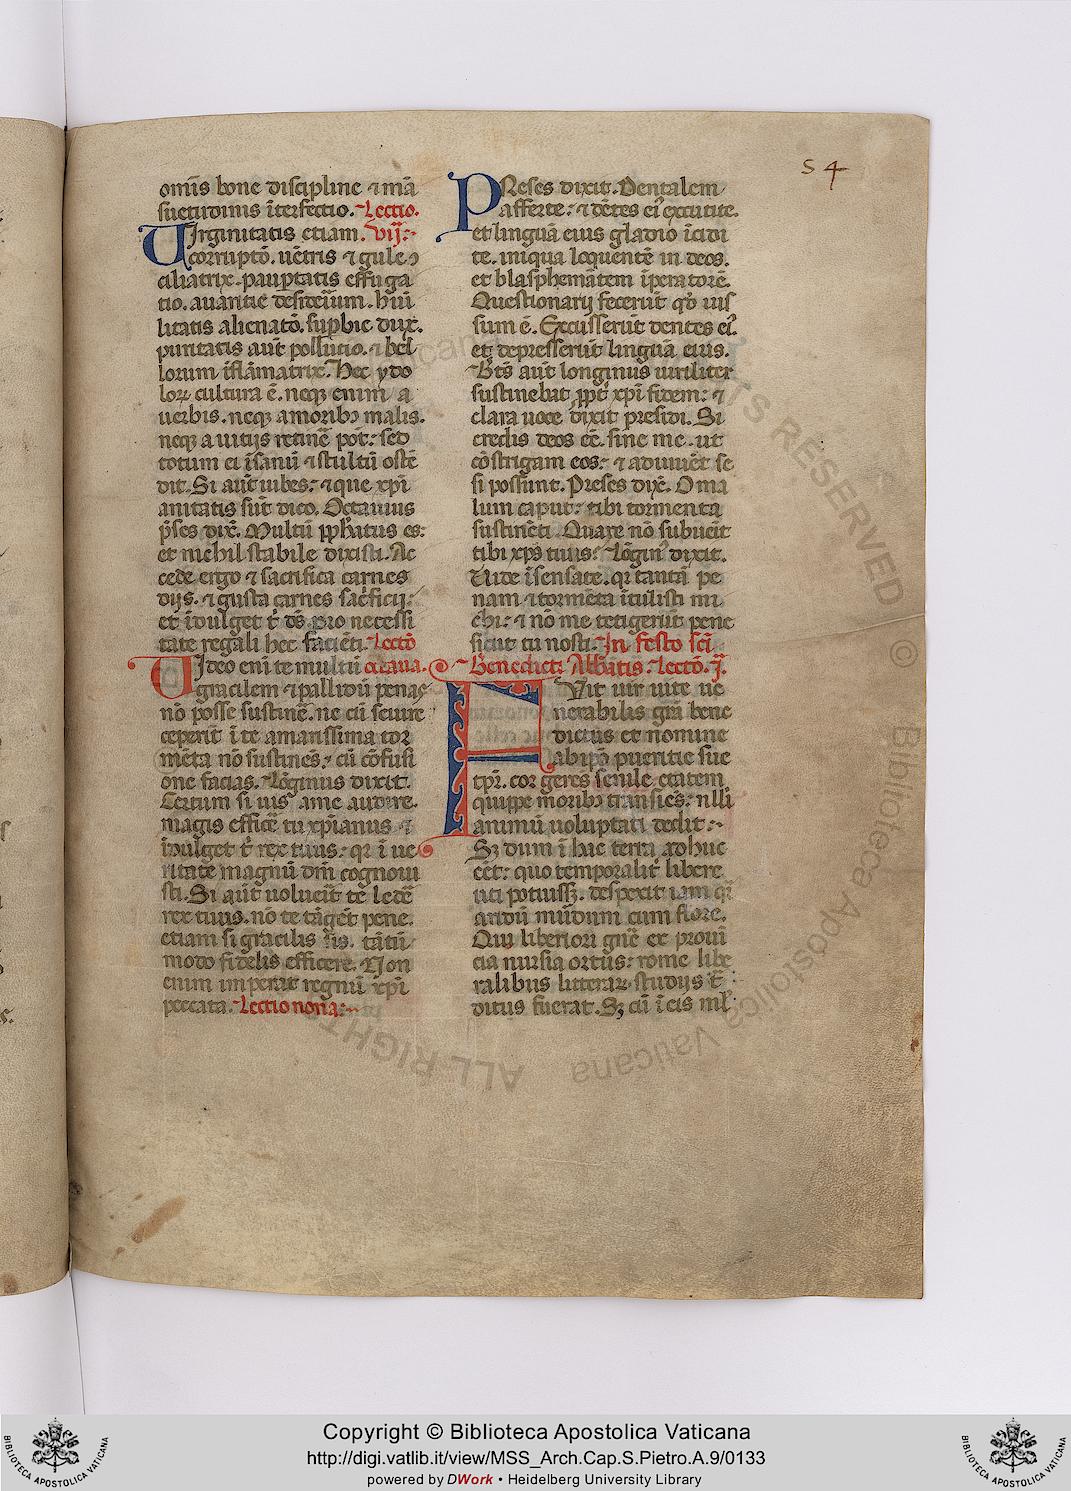 54
om̄is bone discipline ⁊ mā
suetudinis īterfectio. Lectio.
Uirginitatis etiam. vij.
corruptō. uētris ⁊ gule ꝯ
ciliatrix. paup̄tatis effuga
tio. auāritie desideriūm. hūi
litatis alienatō. suꝑbie dux.
puritatis aūt pollutio. ⁊ bel
lorum īflāmatrix. Hec ydo
loꝝ cultura ē. neqꝫ enim a
uerbis. neqꝫ amoribꝫ malis.
neqꝫ a uitijs retinē pōt. sed
totum ei īsanū ⁊ stultū ostē
dit. Si aūt iubes. ⁊ que xp̄i
anitatis sūt dico. Octauius
p̄ses dix̄. Multū ꝓph̄atus es.
et nichil stabile dixisti. Ac
cede ergo ⁊ sacrifica carnes
dijs. ⁊ gusta carnes sacrificij.
et īdulget t̄ ds̄. Pro necessi
tate regali hec faciēti. Lectō
Uideo eni te multū octaua.
gracilem ⁊ pallidū penas
nō posse sustinē. ne cū seuire
ceperit ī te amarissima tor
mēta nō sustinēs. ⁊ cū cōfusi
one facias. Lōginus dixit.
Certum si uis a me audire.
magis efficē tu xp̄ianus ⁊
īdulget t̄ rex tuus. qꝛ ī ue
ritate magnū dm̄ cognoui
sti. Si aūt uoluerit te ledē
rex tuus. nō te tāgēt pene.
etiam si gracilis sis. tātū
modo fidelis efficere. Non
enim imperat regnū xp̄i
peccata. Lectio nona.
PReses dixit. Dentalem
afferte. ⁊ dētes eiꝰ excutite.
et linguā eius gladio īcidi
te. iniqua loquentē in deos.
et blasphemātem īperatorē.
Questionarij fecerūt qd̄ ius
sum ē. Excusserūt dentes eiꝰ.
et depresserūt linguā eius.
Bt̄s aūt longinus uiriliter
sustinebat ꝓpt̄ xp̄i fidem. ⁊
clara uoce dixit presidi. Si
credis deos eē. sine me. ut
cōstrigam eos. ⁊ adiuuēt se
si possunt. Preses dix̄. O ma
lum caput. tibi tormenta
sustinēti. Quare nō subuēit
tibi xp̄s tuus. Lōginꝰ dixit.
Uide īsensate. qꝛ tantā pe
nam ⁊ tormēta ītulisti mi
chi. ⁊ nō me tetigerūt pene
sicut tu nosti. In festo sc̄i
Benedicti Abbatis. Lectō. j.
Fuit uir uite ue
nerabilis grā bene
dictus et nomine
ab ipō pueritie sue
tp̄r. cor gerēs senile. etatem
quippe moribꝫ transiēs. nlli
animū uoluptati dedit.
Sꝫ dum ī hac terra adhuc
eēt. quo temporalit̄ libere
uti potuissꝫ. despexit iam qᷓ
aridū mūdum cum flore.
Qui liberiori gn̄e ex proui
cia nursia ortus. rome libe
ralibus litterarꝫ studijs t̄
ditus fuerat. Sꝫ cū ī eis ml̄
ALL RIGHTS RESERVED © Biblioteca Apostolica Vaticana
Copyright © Biblioteca Apostolica Vaticana
http://digi.vatlib.it/view/MSS_Arch.Cap.S.Pietro.A.9/0133
powered by DWork • Heidelberg University Library
BIBLIOTECA APOSTOLICA VATICANA
BIBLIOTECA APOSTOLICA VATICANA